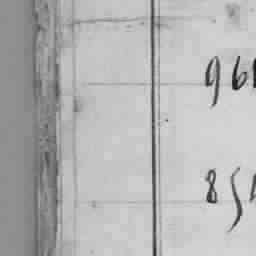 96
85